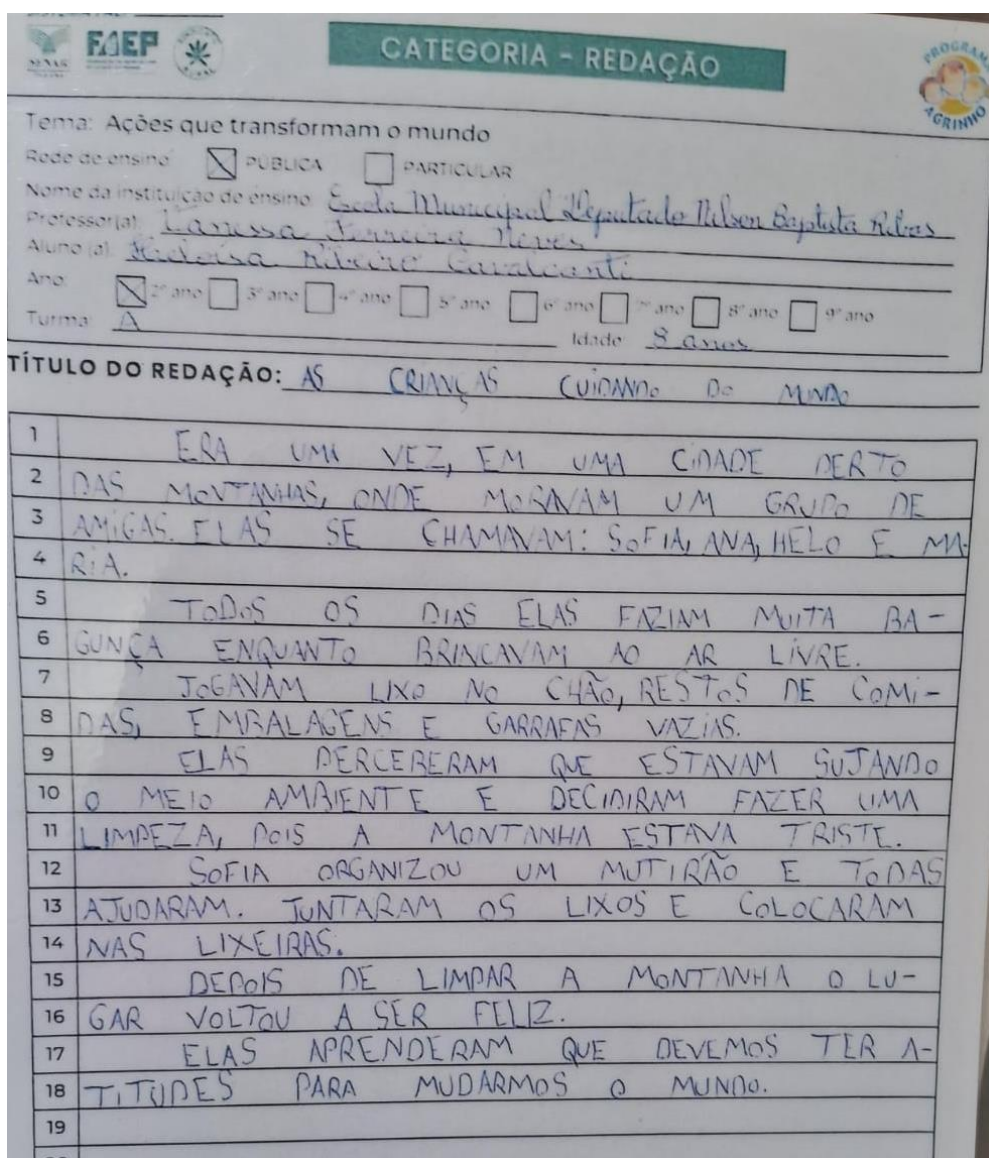 FAEP
CATEGORIA - REDAÇÃO
PROGRAMA AGRINHO
Tema: Ações que transformam o mundo
Rede de ensino: X PÚBLICA PARTICULAR
Nome da instituição de ensino: Escola Municipal Deputado Nilson Baptista Ribas
Professor(a): Vanessa Ferreira Neves
Aluno (a): Heloisa Ribeiro Cavalcanti
Ano: X 2º ano 3º ano 4º ano 5º ano 6º ano 7º ano 8º ano 9º ano
Turma: A Idade: 8 anos
TÍTULO DO REDAÇÃO: AS CRIANÇAS CUIDANDO DO MUNDO
1 ERA UMA VEZ, EM UMA CIDADE PERTO
2 DAS MONTANHAS, ONDE MORAVAM UM GRUPO DE
3 AMIGAS. ELAS SE CHAMAVAM: SOFIA, ANA, HELO E MA-
4 RIA.
5 TODOS OS DIAS ELAS FAZIAM MUITA BA-
6 GUNÇA ENQUANTO BRINCAVAM AO AR LIVRE.
7 JOGAVAM LIXO NO CHÃO, RESTOS DE COMI-
8 DAS, EMBALAGENS E GARRAFAS VAZIAS.
9 ELAS PERCEBERAM QUE ESTAVAM SUJANDO
10 O MEIO AMBIENTE E DECIDIRAM FAZER UMA
11 LIMPEZA, POIS A MONTANHA ESTAVA TRISTE.
12 SOFIA ORGANIZOU UM MUTIRÃO E TODAS
13 AJUDARAM. JUNTARAM OS LIXOS E COLOCARAM
14 NAS LIXEIRAS.
15 DEPOIS DE LIMPAR A MONTANHA O LU-
16 GAR VOLTOU A SER FELIZ.
17 ELAS APRENDERAM QUE DEVEMOS TER A-
18 TITUDES PARA MUDARMOS O MUNDO.
19